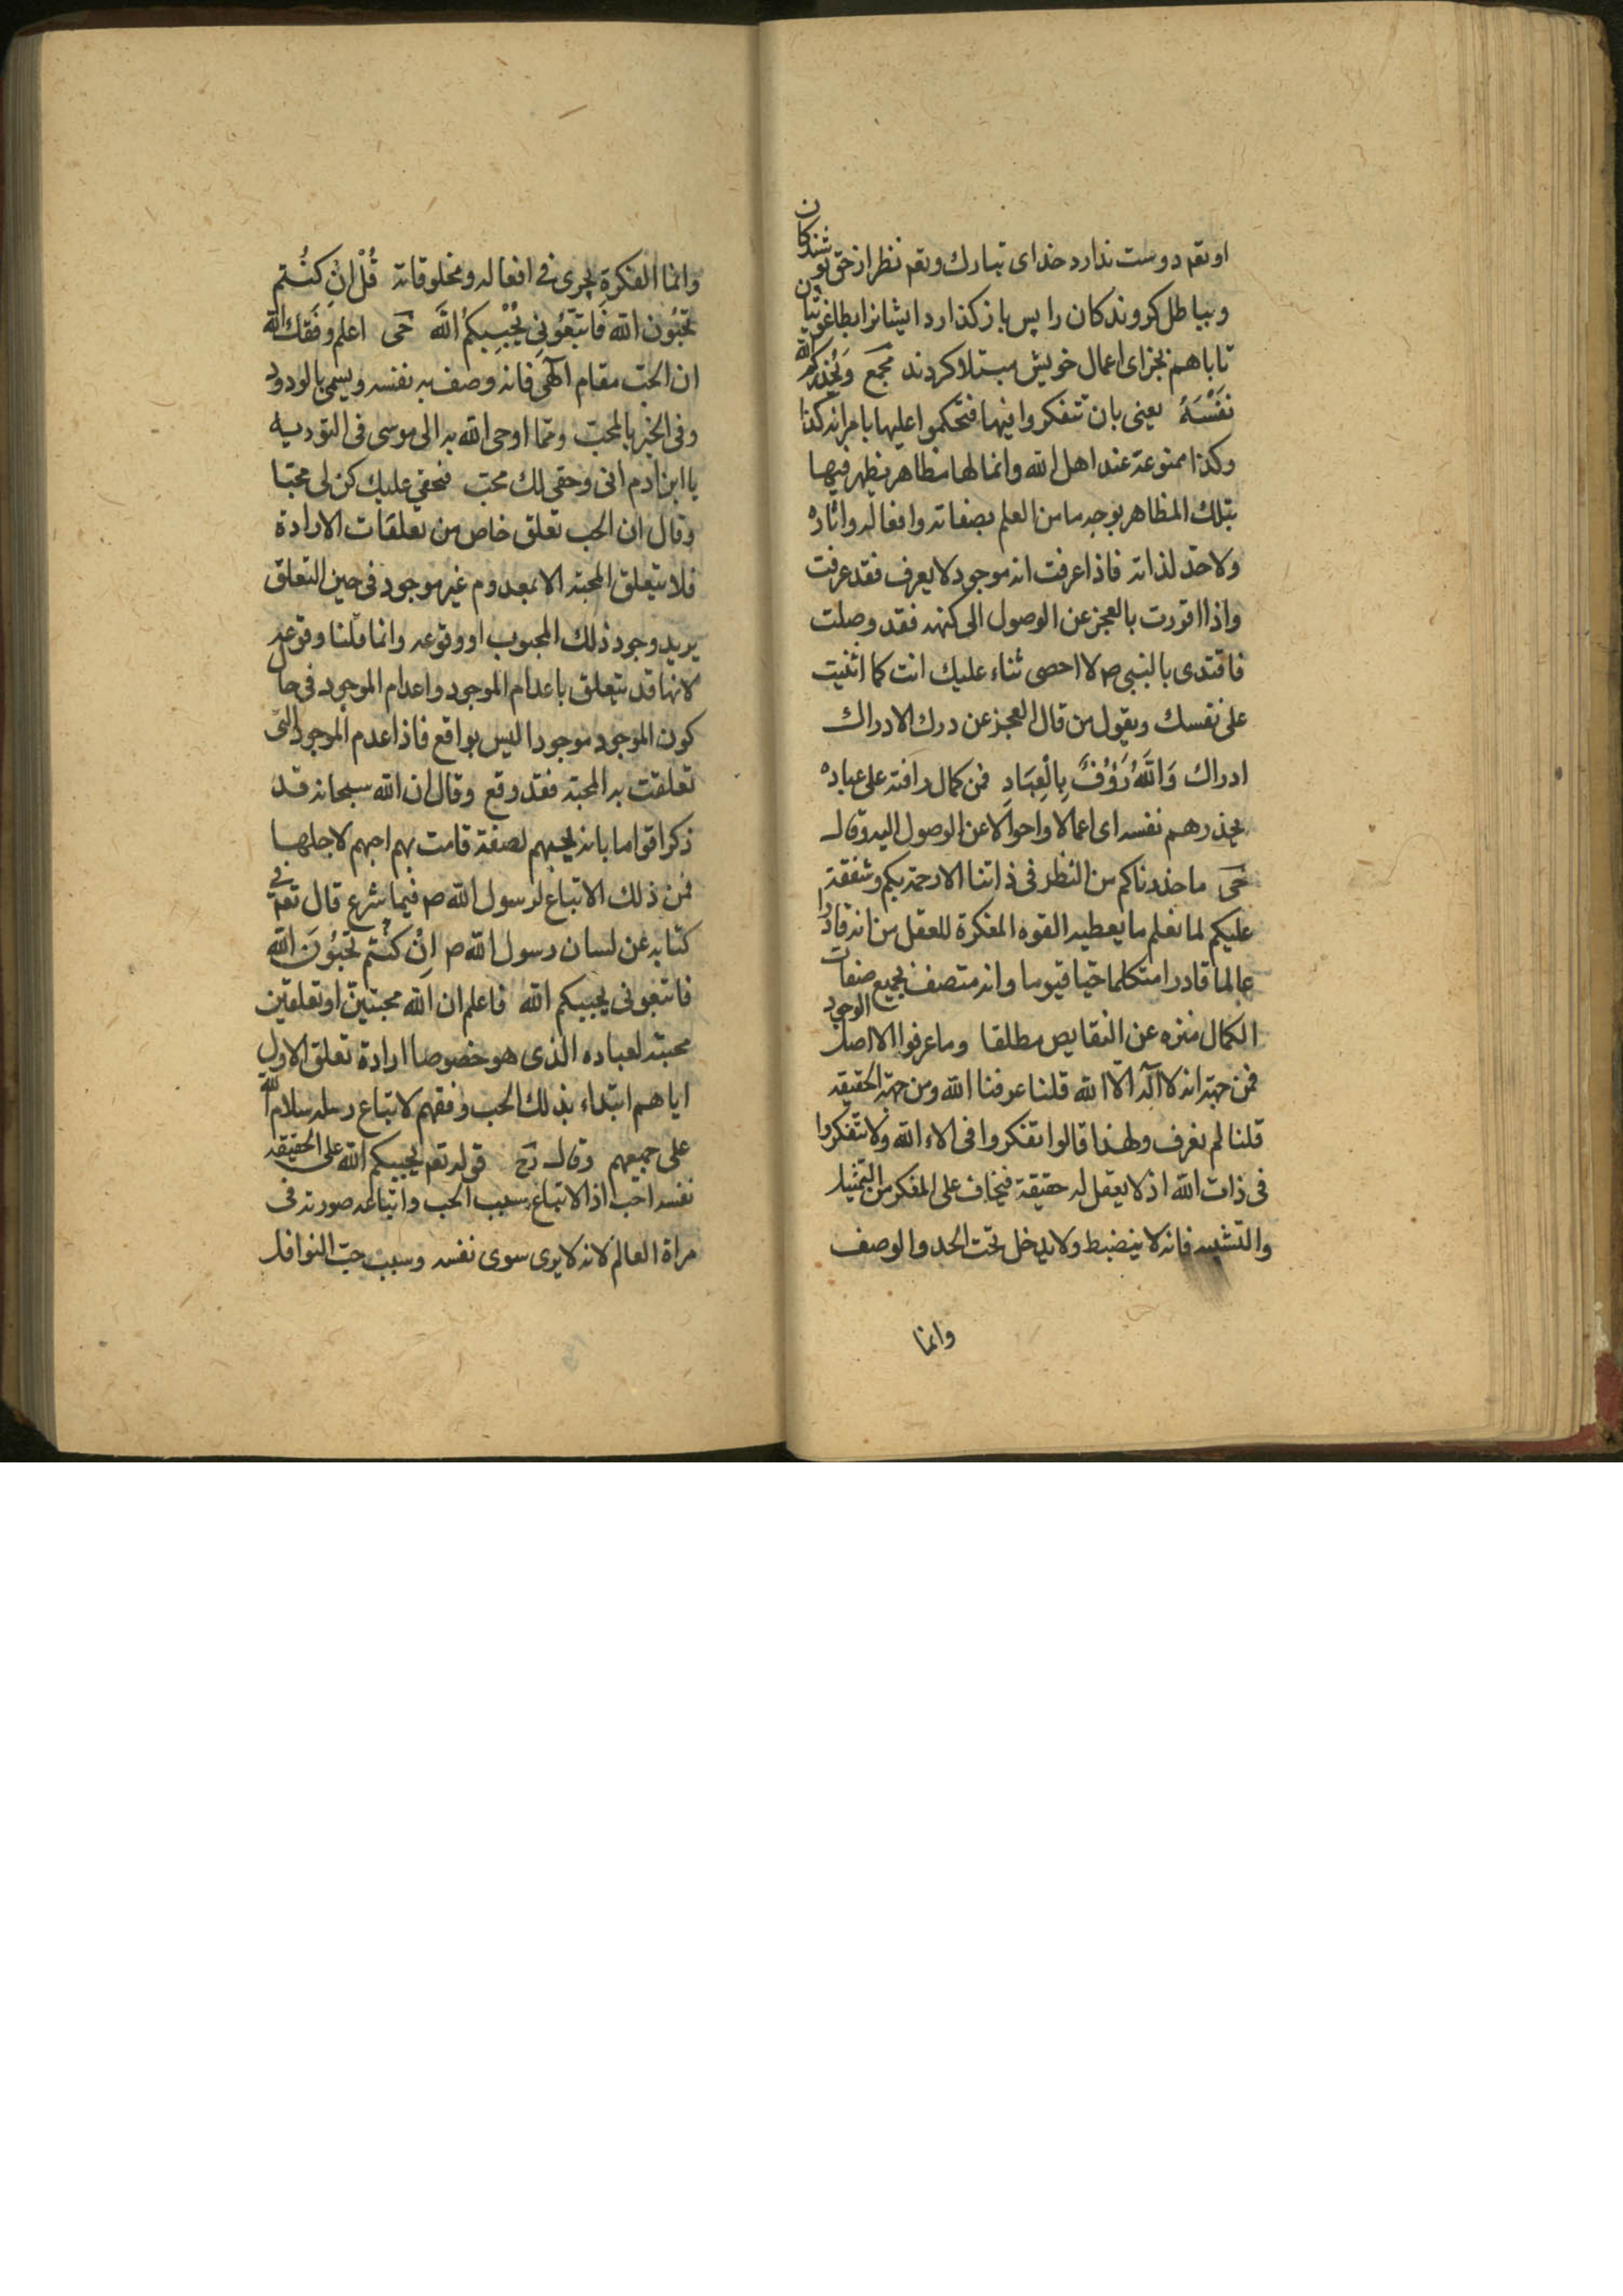 اوتعم دوست ندارد خدای تبارك وتعم نظر از حق پوشندكان
وبباطل كروندكان را پس باز كذارد ایشانرا بطاغوتیان
تا باهم بجزای اعمال خویش مبتلا كردند مجمع وَيُحَذِّرُكُمُ الله
نَفْسَهُ یعنی بان تتفكروا فیها فتحكموا علیها بامرانه كذا
وكذا ممنوعة عند اهل الله وانما لها مظاهر یظهر فیها
بتلك المظاهر بوجه ما من العلم بصفاته وافعاله واثاره
ولا حدّ لذاته فاذا عرفت انه موجود لا یعرف فقد عرفت
واذا اقررت بالعجز عن الوصول الی كنهه فقد وصلت
فاقتدی بالنبی ص لا احصی ثناء علیك انت كما اثنیت
علی نفسك وبقول من قال العجز عن درك الادراك
ادراك وَاللّٰهُ رَؤُفٌ بِالْعِبَادِ فمن كمال رافته علی عباده
یحذرهم نفسه ای اعمالا واحوالا عن الوصول الیه وقال
حَی ما حذرناكم من النظر فی ذاتنا الا رحمة بكم وشفقة
علیكم لما نعلم ما یعطیه القوه المفكرة للعقل من انه قادرا
عالما قادرا متكلما حیا قیوما وانه متصف بجمیع صفات
الكمال منزه عن النقایص مطلقا وما عرفوا الا اصل الوجود
فمن جهة انه لا آله الّا الله قلنا عرفنا الله ومن جهة الحقیقه
قلنا لم نعرف ولهذا قالوا تفكروا فی الاء الله ولا تتفكروا
فی ذات الله اذ لا یعقل له حقیقة فیخاف علی المفكر من التمثیل
والتشبیه فانه لا ینضبط ولا یدخل تحت الحد والوصف
وانما
وانما الفكرة یجری فی افعاله ومخلوقاته قُلْ اِنْ كُنْتُم
تُحِبُّونَ الله فَاتَّبِعُونِی يُحْبِبْكُمُ اللّٰهُ حَی اعلم وفقك الله
ان الحبّ مقام آلهی فانه وصف به نفسه ویسمی بالودود
وفی الخبر بالمحبّ ومّما اوحی الله به الی موسی فی التوریه
یا ابن ادم انی وحقی لك محبّ فبحقی علیك كن لی محبّا
وقال ان الحب تعلق خاص من تعلقات الارادة
فلا تتعلق المحبّه الا بمعدوم غیر موجود فی حین التعلق
یرید وجود ذلك المحبوب او وقوعه وانما قلنا وقوعه
لانها قد یتعلق باعدام الموجود واعدام الموجود فی حال
كون الموجود موجودا لیس بواقع فاذا عدم الموجود التی
تعلقت به المحبّة فقد وقع وقال ان الله سبحانه قد
ذكر اقواما بانه یحبهم لصفة قامت بهم احبهم لاجلها
فمن ذلك الاتباع لرسول الله ص فیما شرع قال تعم فی
كتابه عن لسان رسول الله ص اِنْ كُنْتُم تُحِبُّونَ الله
فاتبعونی یحببكم الله فاعلم ان الله محبتین او تعلقین
محبته لعباده الذی هو خصوصا ارادة تعلق الاول
ایاهم ابتداء بذلك الحب وفقهم لاتباع رسله سلام الله
علی جمیعهم وقال رَح قوله تعم یحببكم الله علی الحقیقه
نفسه احب اذ الاتباع سبب الحب واتباعه صورته فی
مراة العالم لانه لا یری سوی نفسه وسبب حبّ النوافل